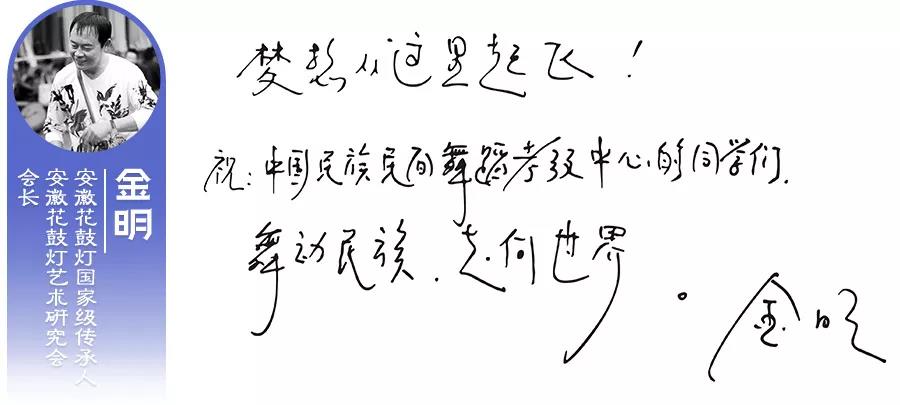 金明
安徽花鼓灯国家级传承人
安徽花鼓灯艺术研究会
会长
梦想从这里起飞！
祝：中国民族民间舞蹈考级中心的同学们，
舞动民族，走向世界。
金明